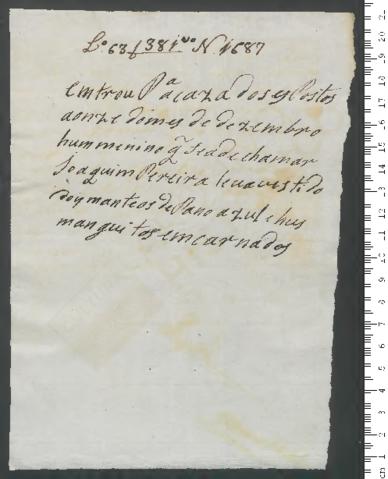 Lº 63 f 381 vº N. 1687
emtrou Pª a caza dos espostos
aonze do mes de dezembro
hum menino q̃ se a de chamar
Joaquim Pereira leva vestido
doys manteos de Pano azul e hus
manguitos emcarnados